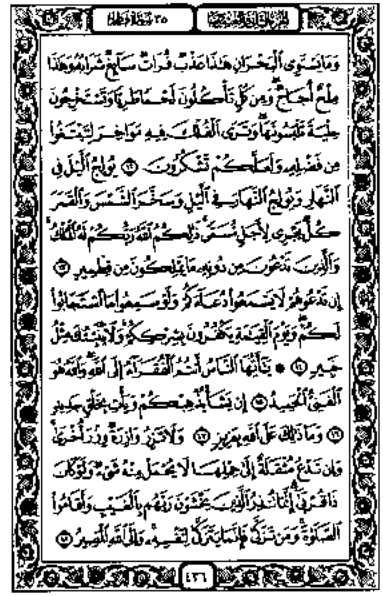 الجزء الثاني والعشرون ٣٥ سورة فاطر
وَمَا يَسْتَوِي الْبَحْرَانِ هَٰذَا عَذْبٌ فُرَاتٌ سَائِغٌ شَرَابُهُ وَهَٰذَا
مِلْحٌ أُجَاجٌ وَمِن كُلٍّ تَأْكُلُونَ لَحْمًا طَرِيًّا وَتَسْتَخْرِجُونَ
حِلْيَةً تَلْبَسُونَهَا وَتَرَى الْفُلْكَ فِيهِ مَوَاخِرَ لِتَبْتَغُوا
مِن فَضْلِهِ وَلَعَلَّكُمْ تَشْكُرُونَ ١٢ يُولِجُ اللَّيْلَ فِي
النَّهَارِ وَيُولِجُ النَّهَارَ فِي اللَّيْلِ وَسَخَّرَ الشَّمْسَ وَالْقَمَرَ
كُلٌّ يَجْرِي لِأَجَلٍ مُّسَمًّى ذَٰلِكُمُ اللَّهُ رَبُّكُمْ لَهُ الْمُلْكُ
وَالَّذِينَ تَدْعُونَ مِن دُونِهِ مَا يَمْلِكُونَ مِن قِطْمِيرٍ ١٣
إِن تَدْعُوهُمْ لَا يَسْمَعُوا دُعَاءَكُمْ وَلَوْ سَمِعُوا مَا اسْتَجَابُوا
لَكُمْ وَيَوْمَ الْقِيَامَةِ يَكْفُرُونَ بِشِرْكِكُمْ وَلَا يُنَبِّئُكَ مِثْلُ
خَبِيرٍ ١٤ ۞ يَا أَيُّهَا النَّاسُ أَنتُمُ الْفُقَرَاءُ إِلَى اللَّهِ وَاللَّهُ هُوَ
الْغَنِيُّ الْحَمِيدُ ١٥ إِن يَشَأْ يُذْهِبْكُمْ وَيَأْتِ بِخَلْقٍ جَدِيدٍ
١٦ وَمَا ذَٰلِكَ عَلَى اللَّهِ بِعَزِيزٍ ١٧ وَلَا تَزِرُ وَازِرَةٌ وِزْرَ أُخْرَىٰ
وَإِن تَدْعُ مُثْقَلَةٌ إِلَىٰ حِمْلِهَا لَا يُحْمَلْ مِنْهُ شَيْءٌ وَلَوْ كَانَ
ذَا قُرْبَىٰ إِنَّمَا تُنذِرُ الَّذِينَ يَخْشَوْنَ رَبَّهُم بِالْغَيْبِ وَأَقَامُوا
الصَّلَاةَ وَمَن تَزَكَّىٰ فَإِنَّمَا يَتَزَكَّىٰ لِنَفْسِهِ وَإِلَى اللَّهِ الْمَصِيرُ ١٨
٤٣٦